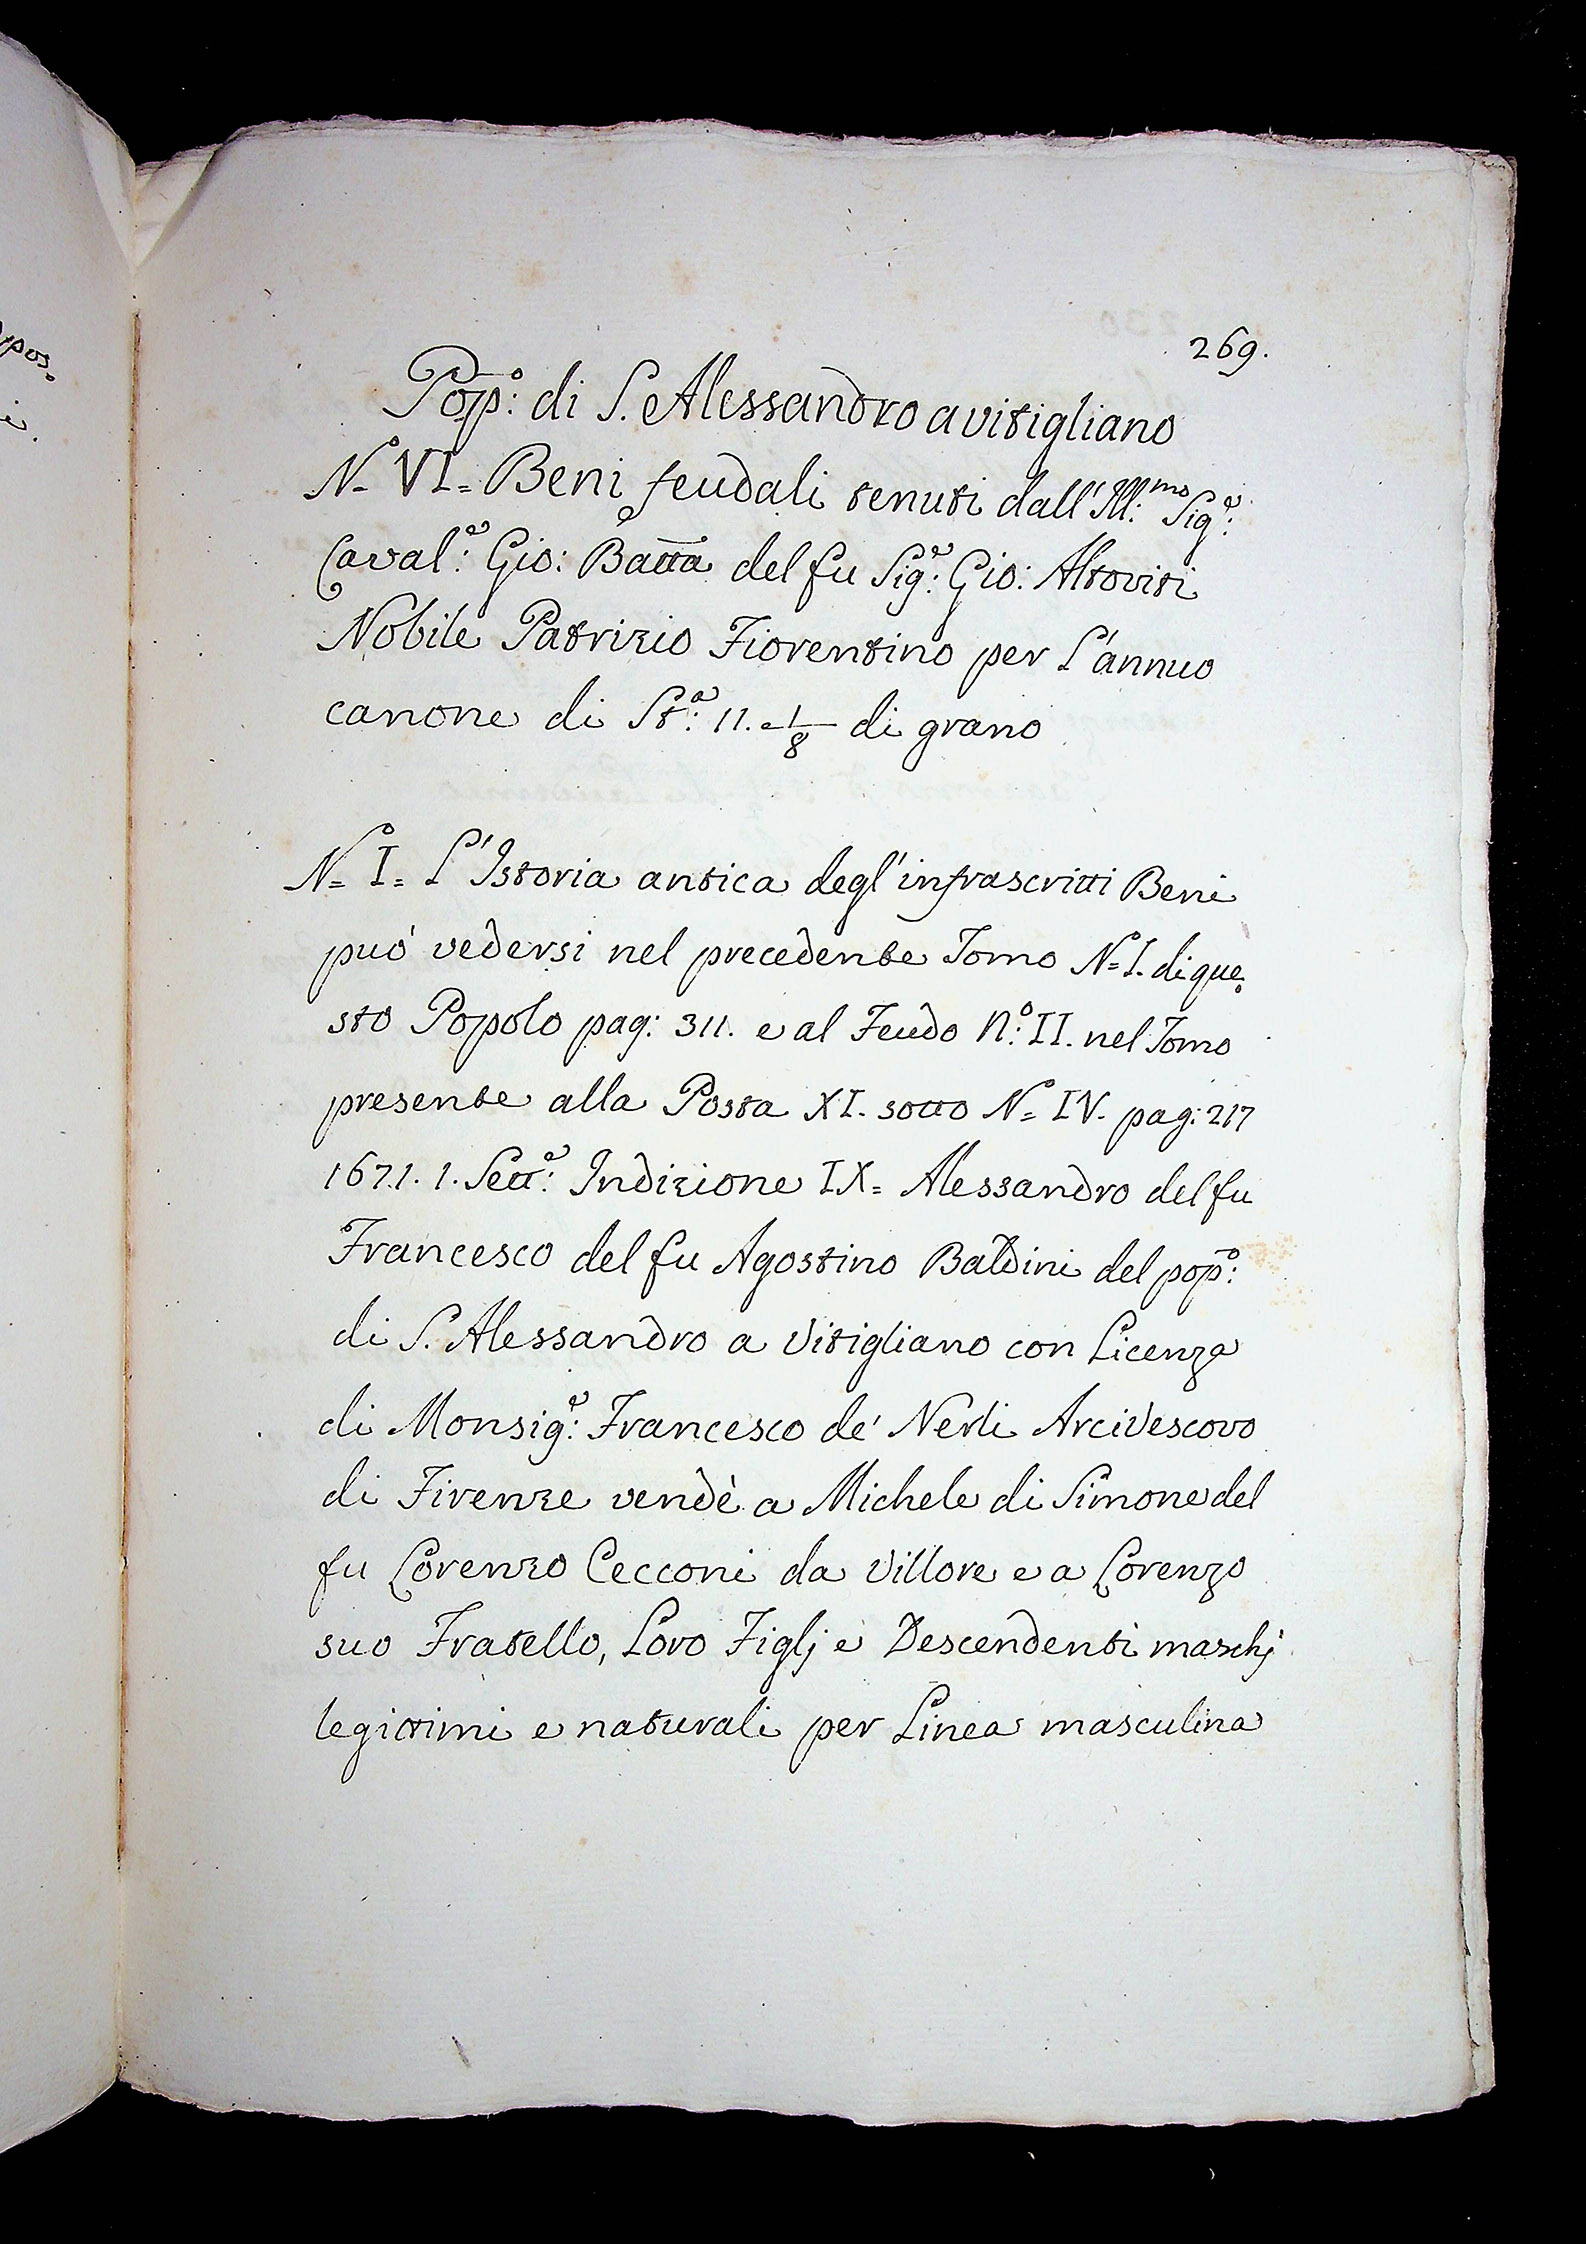 pos=
e.
269.
Pop.º: di S. Alessandro a vitigliano
Nº VI= Beni feudali tenuti dall'Ill:mo Sig.e:
Caval.e: Gio: Batta del fu Sig.e: Gio: Altoviti
Nobile Patrizio Fiorentino per L'annuo
canone di St.a: 11. e 1/8 di grano
Nº= I= L'Istoria antica degl'infrascritti Beni
può vedersi nel precedente Tomo Nº= I. di que=
sto Popolo pag: 311. e al Feudo N.º: II. nel Tomo
presente alla Posta XI. sotto Nº= IV. pag: 217
1671. 1. Sett.e: Indizione IX= Alessandro del fu
Francesco del fu Agostino Baldini del pop.º:
di S. Alessandro a Vitigliano con Licenza
di Monsig.e: Francesco de' Nerli Arcivescovo
di Firenze vendè a Michele di Simone del
fu Lorenzo Cecconi da Villore e a Lorenzo
suo Fratello, Loro Figlj e Descendenti maschj
legittimi e naturali per Linea masculina